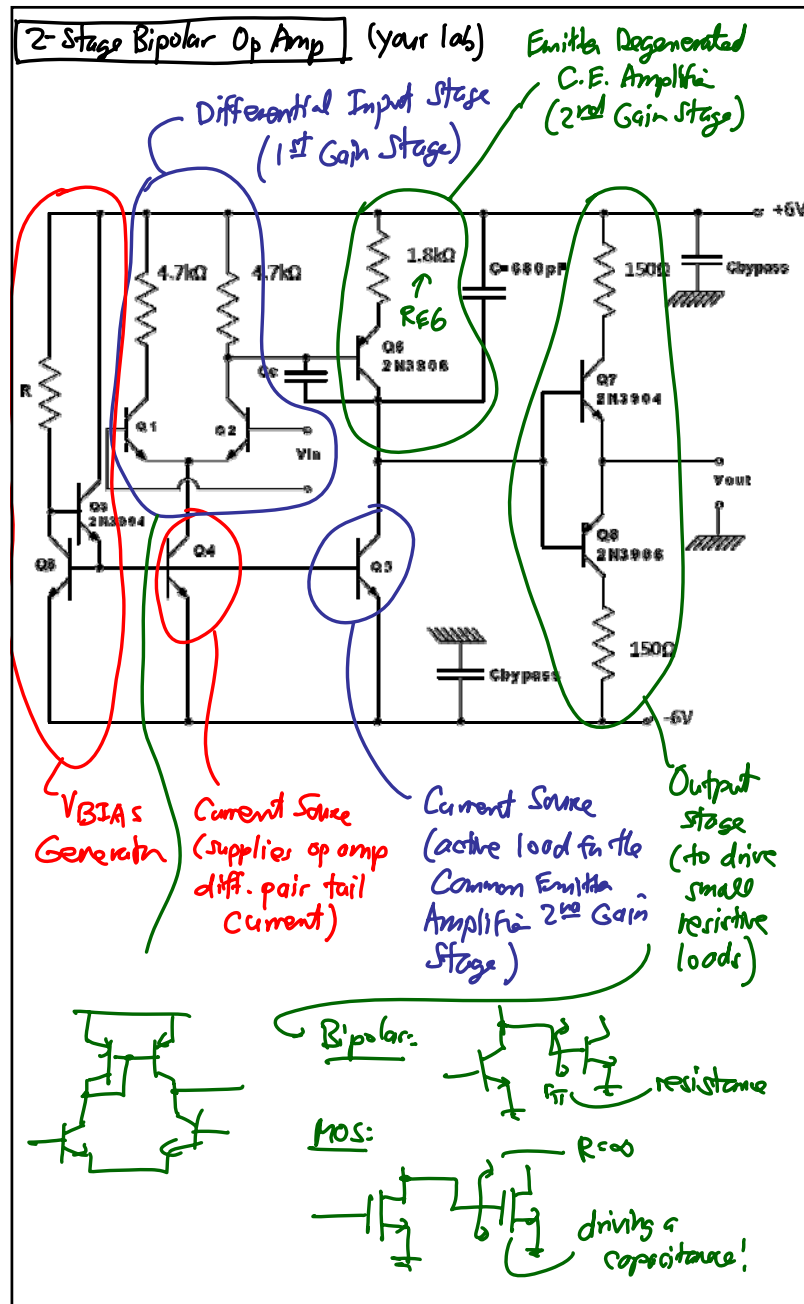 2-Stage Bipolar Op Amp (your lab)
Emitter Degenerated
C.E. Amplifier
(2nd Gain Stage)
Differential Input Stage
(1st Gain Stage)
+6V
4.7kΩ
4.7kΩ
1.8kΩ
↑
RE6
C=680pF
150Ω
Cbypass
R
Cc
Q6
2N3906
Q7
2N3904
Q1
Q2
Vin
Vout
2N3904
Q4
Q5
Q8
2N3906
Cbypass
150Ω
-6V
VBIAS
Generator
Current Source
(supplies op amp
diff. pair tail
current)
Current Source
(active load for the
Common Emitter
Amplifier 2nd Gain
Stage)
Output
stage
(to drive
small
resistive
loads)
Bipolar:
rπ
resistance
MOS:
R=∞
driving a
capacitance!